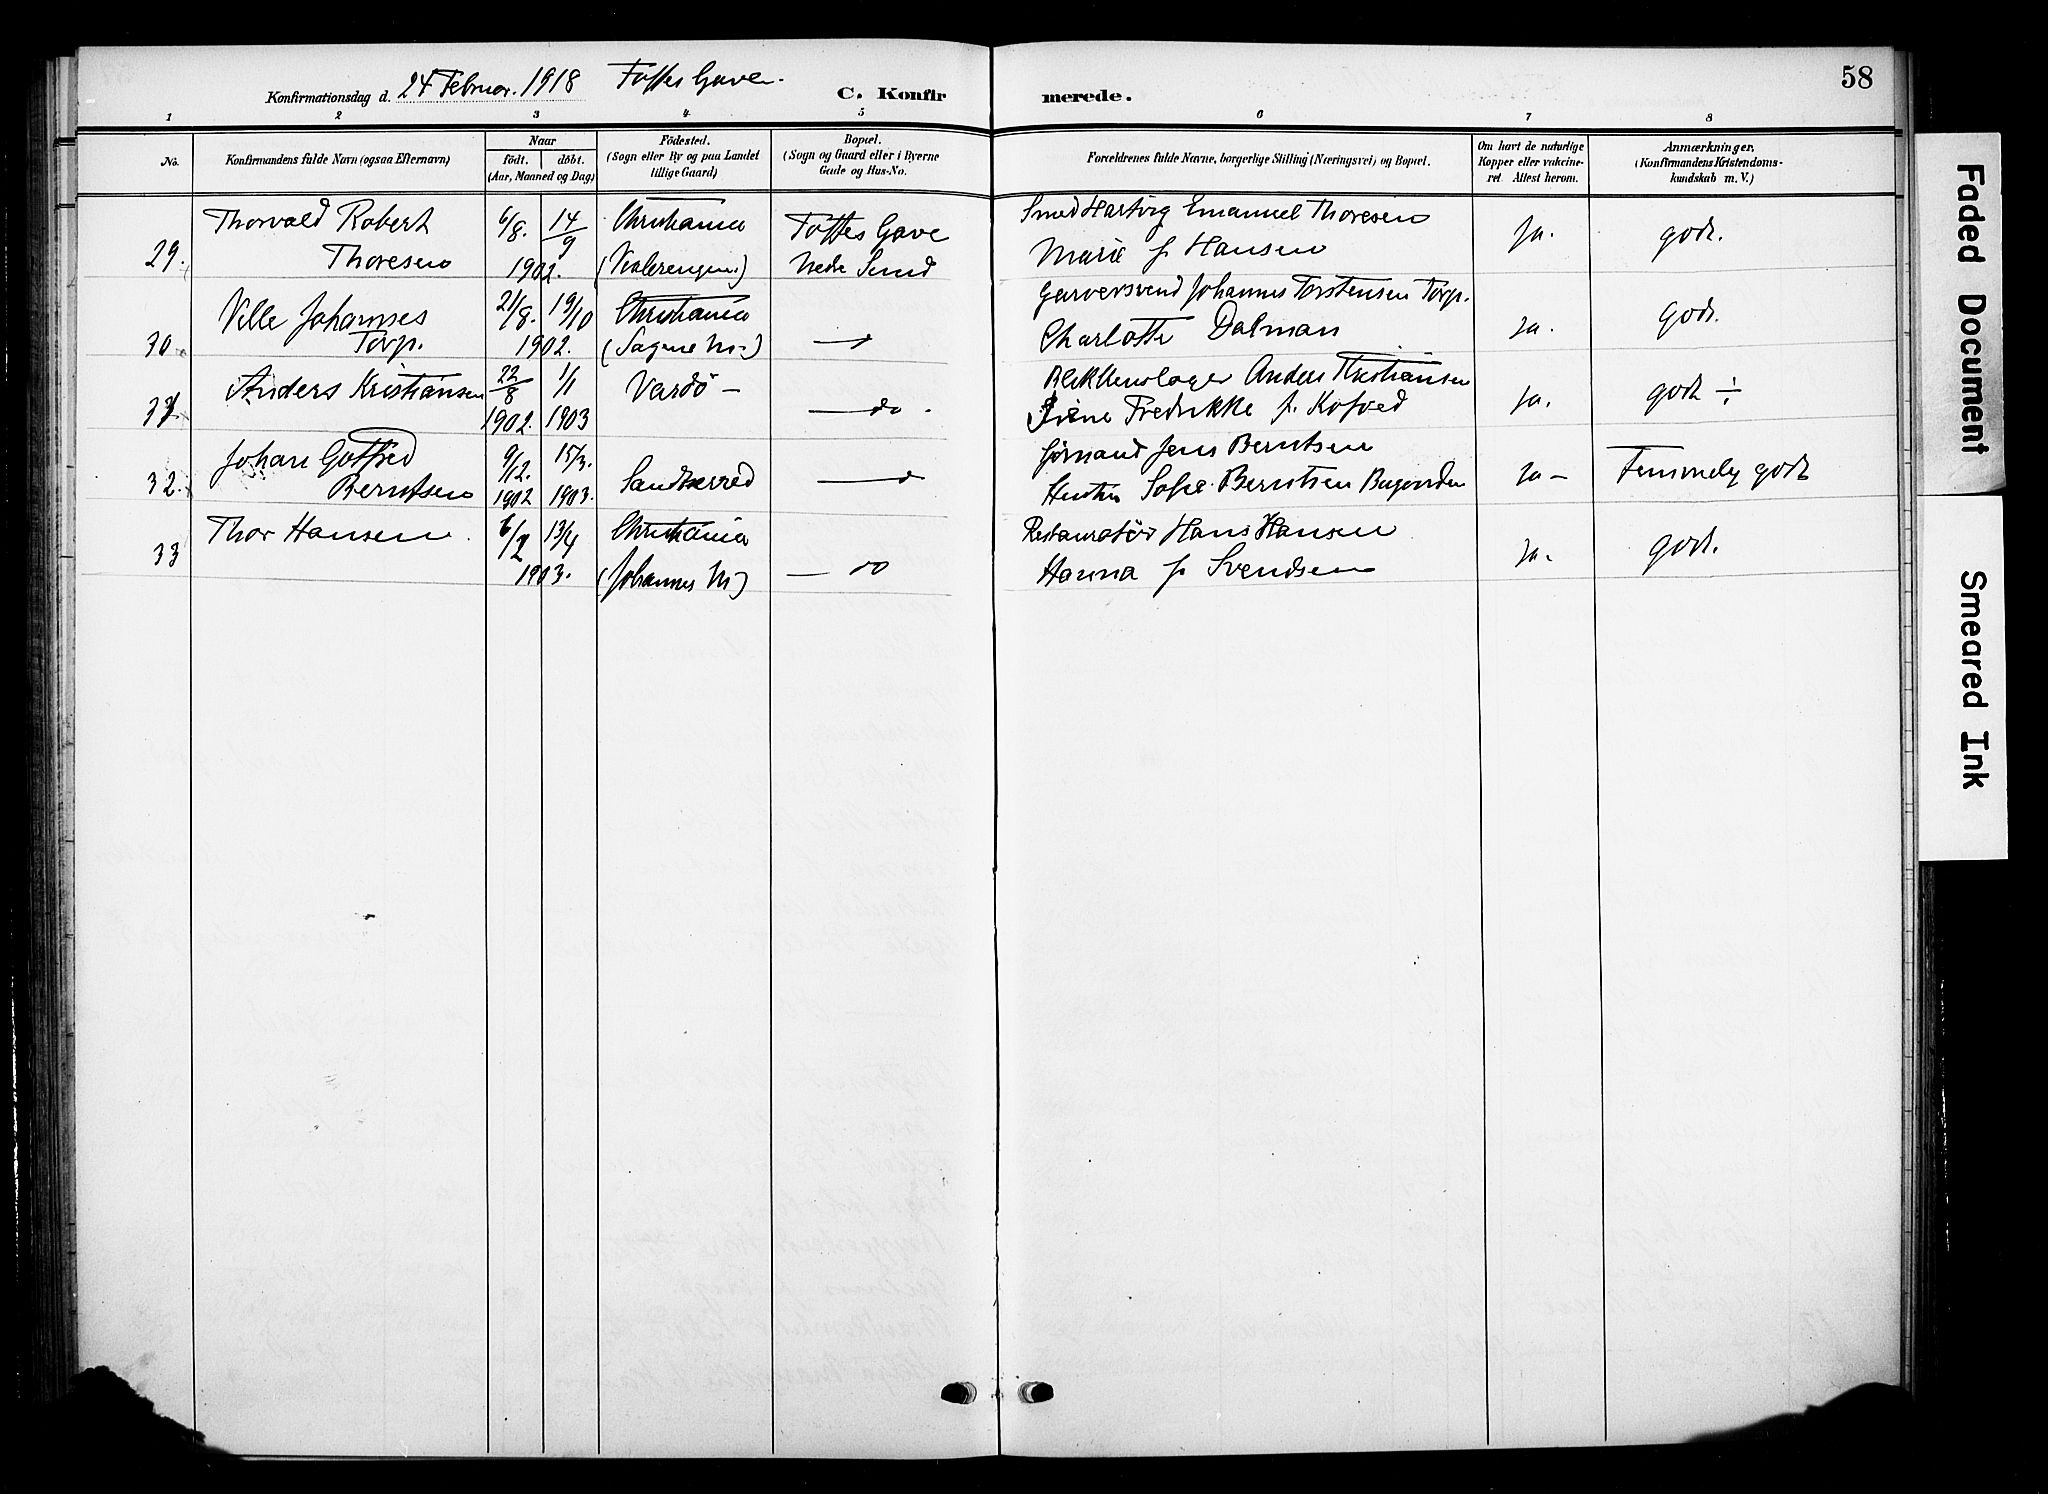 58
Konfirmationsdag d. 24 Februar. 1918 Toftes Gave.
C. Konfirmerede.
1 2 3 4 5 6 7 8
No.
Konfirmandens fulde Navn (ogsaa Efternavn)
Naar
födt. döbt.
(Aar, Maaned og Dag)
Födested.
(Sogn eller By og paa Landet
tillige Gaard)
Bopæl.
(Sogn og Gaard eller i Byerne
Gade og Hus-No.
Forældrenes fulde Navne, borgerlige Stilling (Næringsvei) og Bopæl.
Om havt de naturlige
Kopper eller vakcine-
ret Attest herom.
Anmærkninger.
(Konfirmandens Kristendoms-
kundskab m. V.)
Thorvald Robert 6/8. 14/9 Christiania Toftes Gave Smed Hartvig Emanuel Thoresen
29. Thoresen 1902. (Vaalerengen) Nedre Marie f. Hansen ja. godt.
Ville Johannes 21/8. 19/10 Christiania Garversvend Johannes Torstensen Torp.
30. Torp. 1902. (Sagene M-) Charlotte Dalman ja. godt.
Anders Kristiansen 22/8 1/1 Vardö — Anders Kristiansen
31. 1902. 1903 — do. Fredrikke f. Kofoed ja. godt ÷
Johan Gotfred 9/12. 15/3. Jens Berntsen
32. Berntsen 1902 1903. Sandherred Hustru Sofie Berntsen ja - Temmelig godt
Thor Hansen. 6/2 13/4 Christiania Restauratör Hans Hansen
33 1903. (Johannes M) — do Hanna f. Svendsen ja. godt.
Faded Document
Smeared Ink